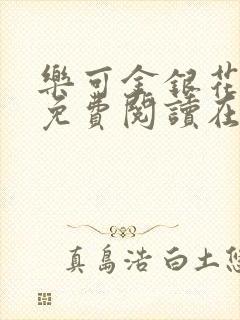 樂可金銀花
免費閱讀在
真島浩 白土悠